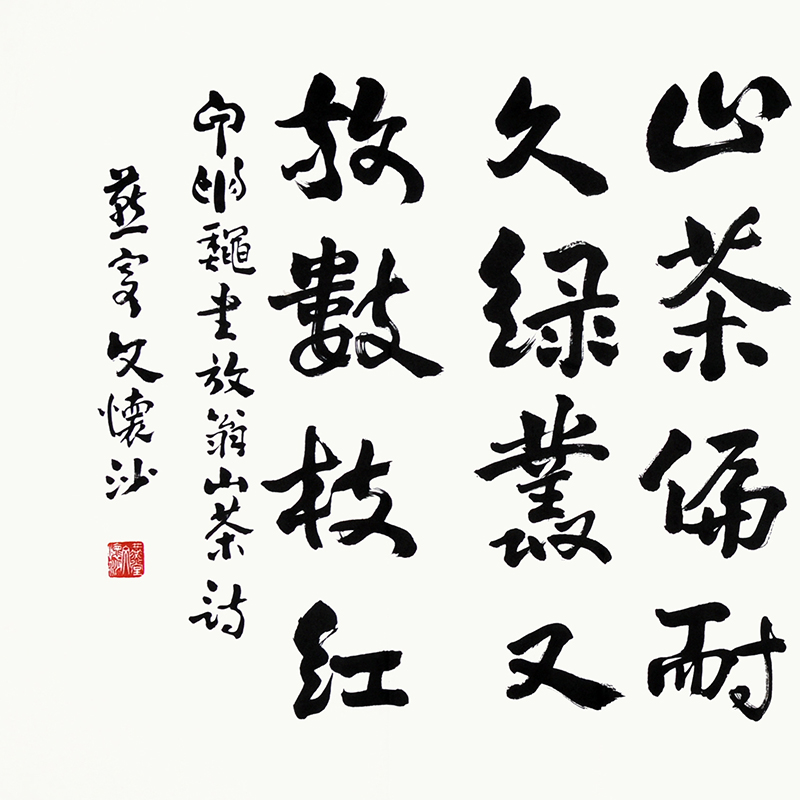 山茶偏耐
久绿叢又
放數枝红
放翁山茶诗
燕叟文懷沙